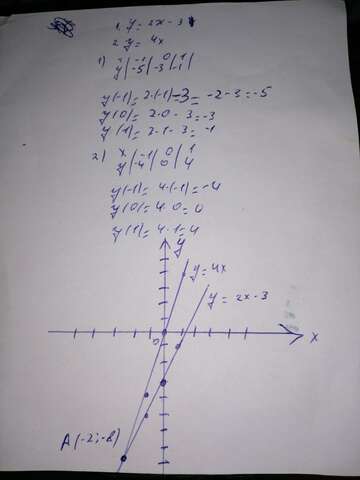 1. y = 2x - 3
2. y = 4x
1) x | -1 | 0 | 1
y | -5 | -3 | -1 |
y(-1) = 2·(-1) - 3 = -2-3 = -5
y(0) = 2·0 - 3 = -3
y(1) = 2·1 - 3 = -1
2) x | -1 | 0 | 1
y | -4 | 0 | 4
y(-1) = 4·(-1) = -4
y(0) = 4·0 = 0
y(1) = 4·1 = 4
y
y = 4x
y = 2x - 3
0
x
A(-2; -8)